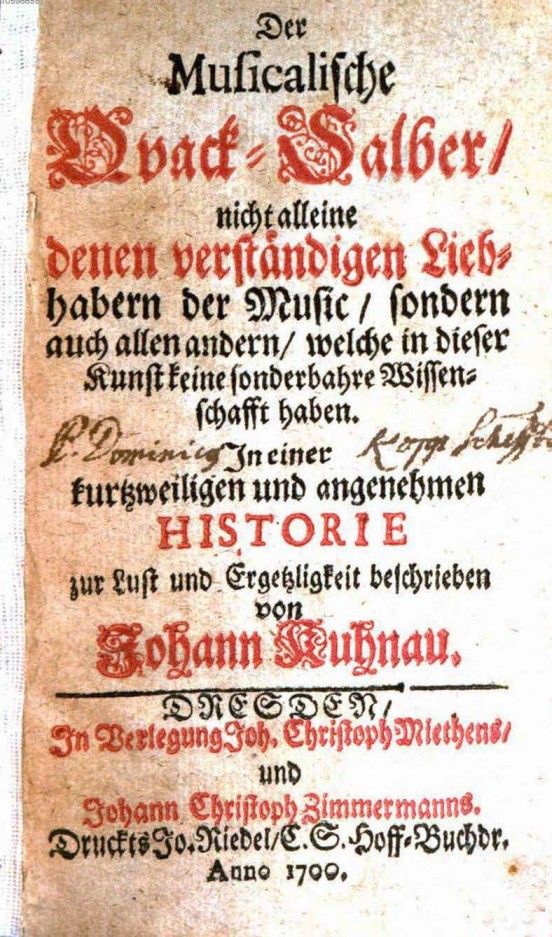 Der
Musicalische
Qvack-Salber/
nicht alleine
denen verständigen Lieb-
habern der Music / sondern
auch allen andern/ welche in dieser
Kunst keine sonderbahre Wissen-
schafft haben.
P. Dominicus
In einer
kurtzweiligen und angenehmen
HISTORIE
zur Lust und Ergetzligkeit beschrieben
von
Johann Kuhnau.
DRESDEN/
In Verlegung Joh. Christoph Miethens/
und
Johann Christoph Zimmermanns.
Druckts Jo. Riedel/ C. S. Hoff-Buchdr.
Anno 1700.